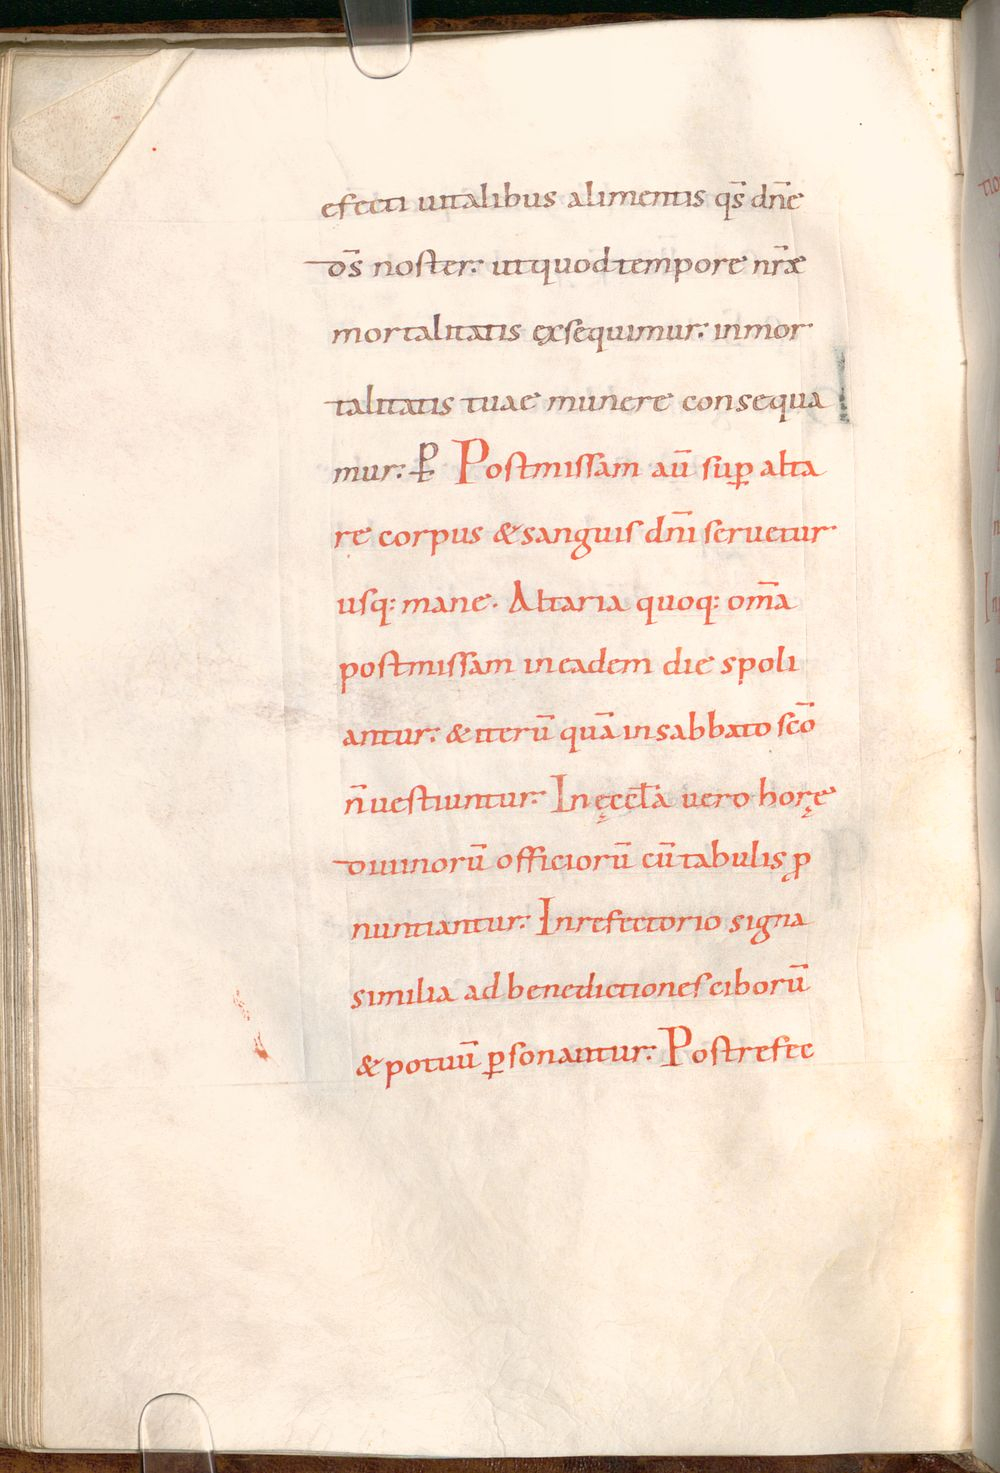 efecti uitalibus alimentis qs̄ dñe
ds̄ noster: utquodtempore nr̄æ
mortalitatis exsequimur: inmor
talitatis tuae munere consequa
mur: ꝑ Postmissam aū suꝑ alta
re corpus &sanguis dn̄i seruetur
usq: mane. Altaria quoq: om̄a
postmissam ineadem die spoli
antur: &iterū quā insabbato sc̄o
n̄uestiuntur: In ęccl̄a uero horę
diuinorū officiorū cū tabulis ꝓ
nuntiantur: Inrefectorio signa
similia ad benedictiones ciborū
&potuū ꝑsonantur: Postrefec